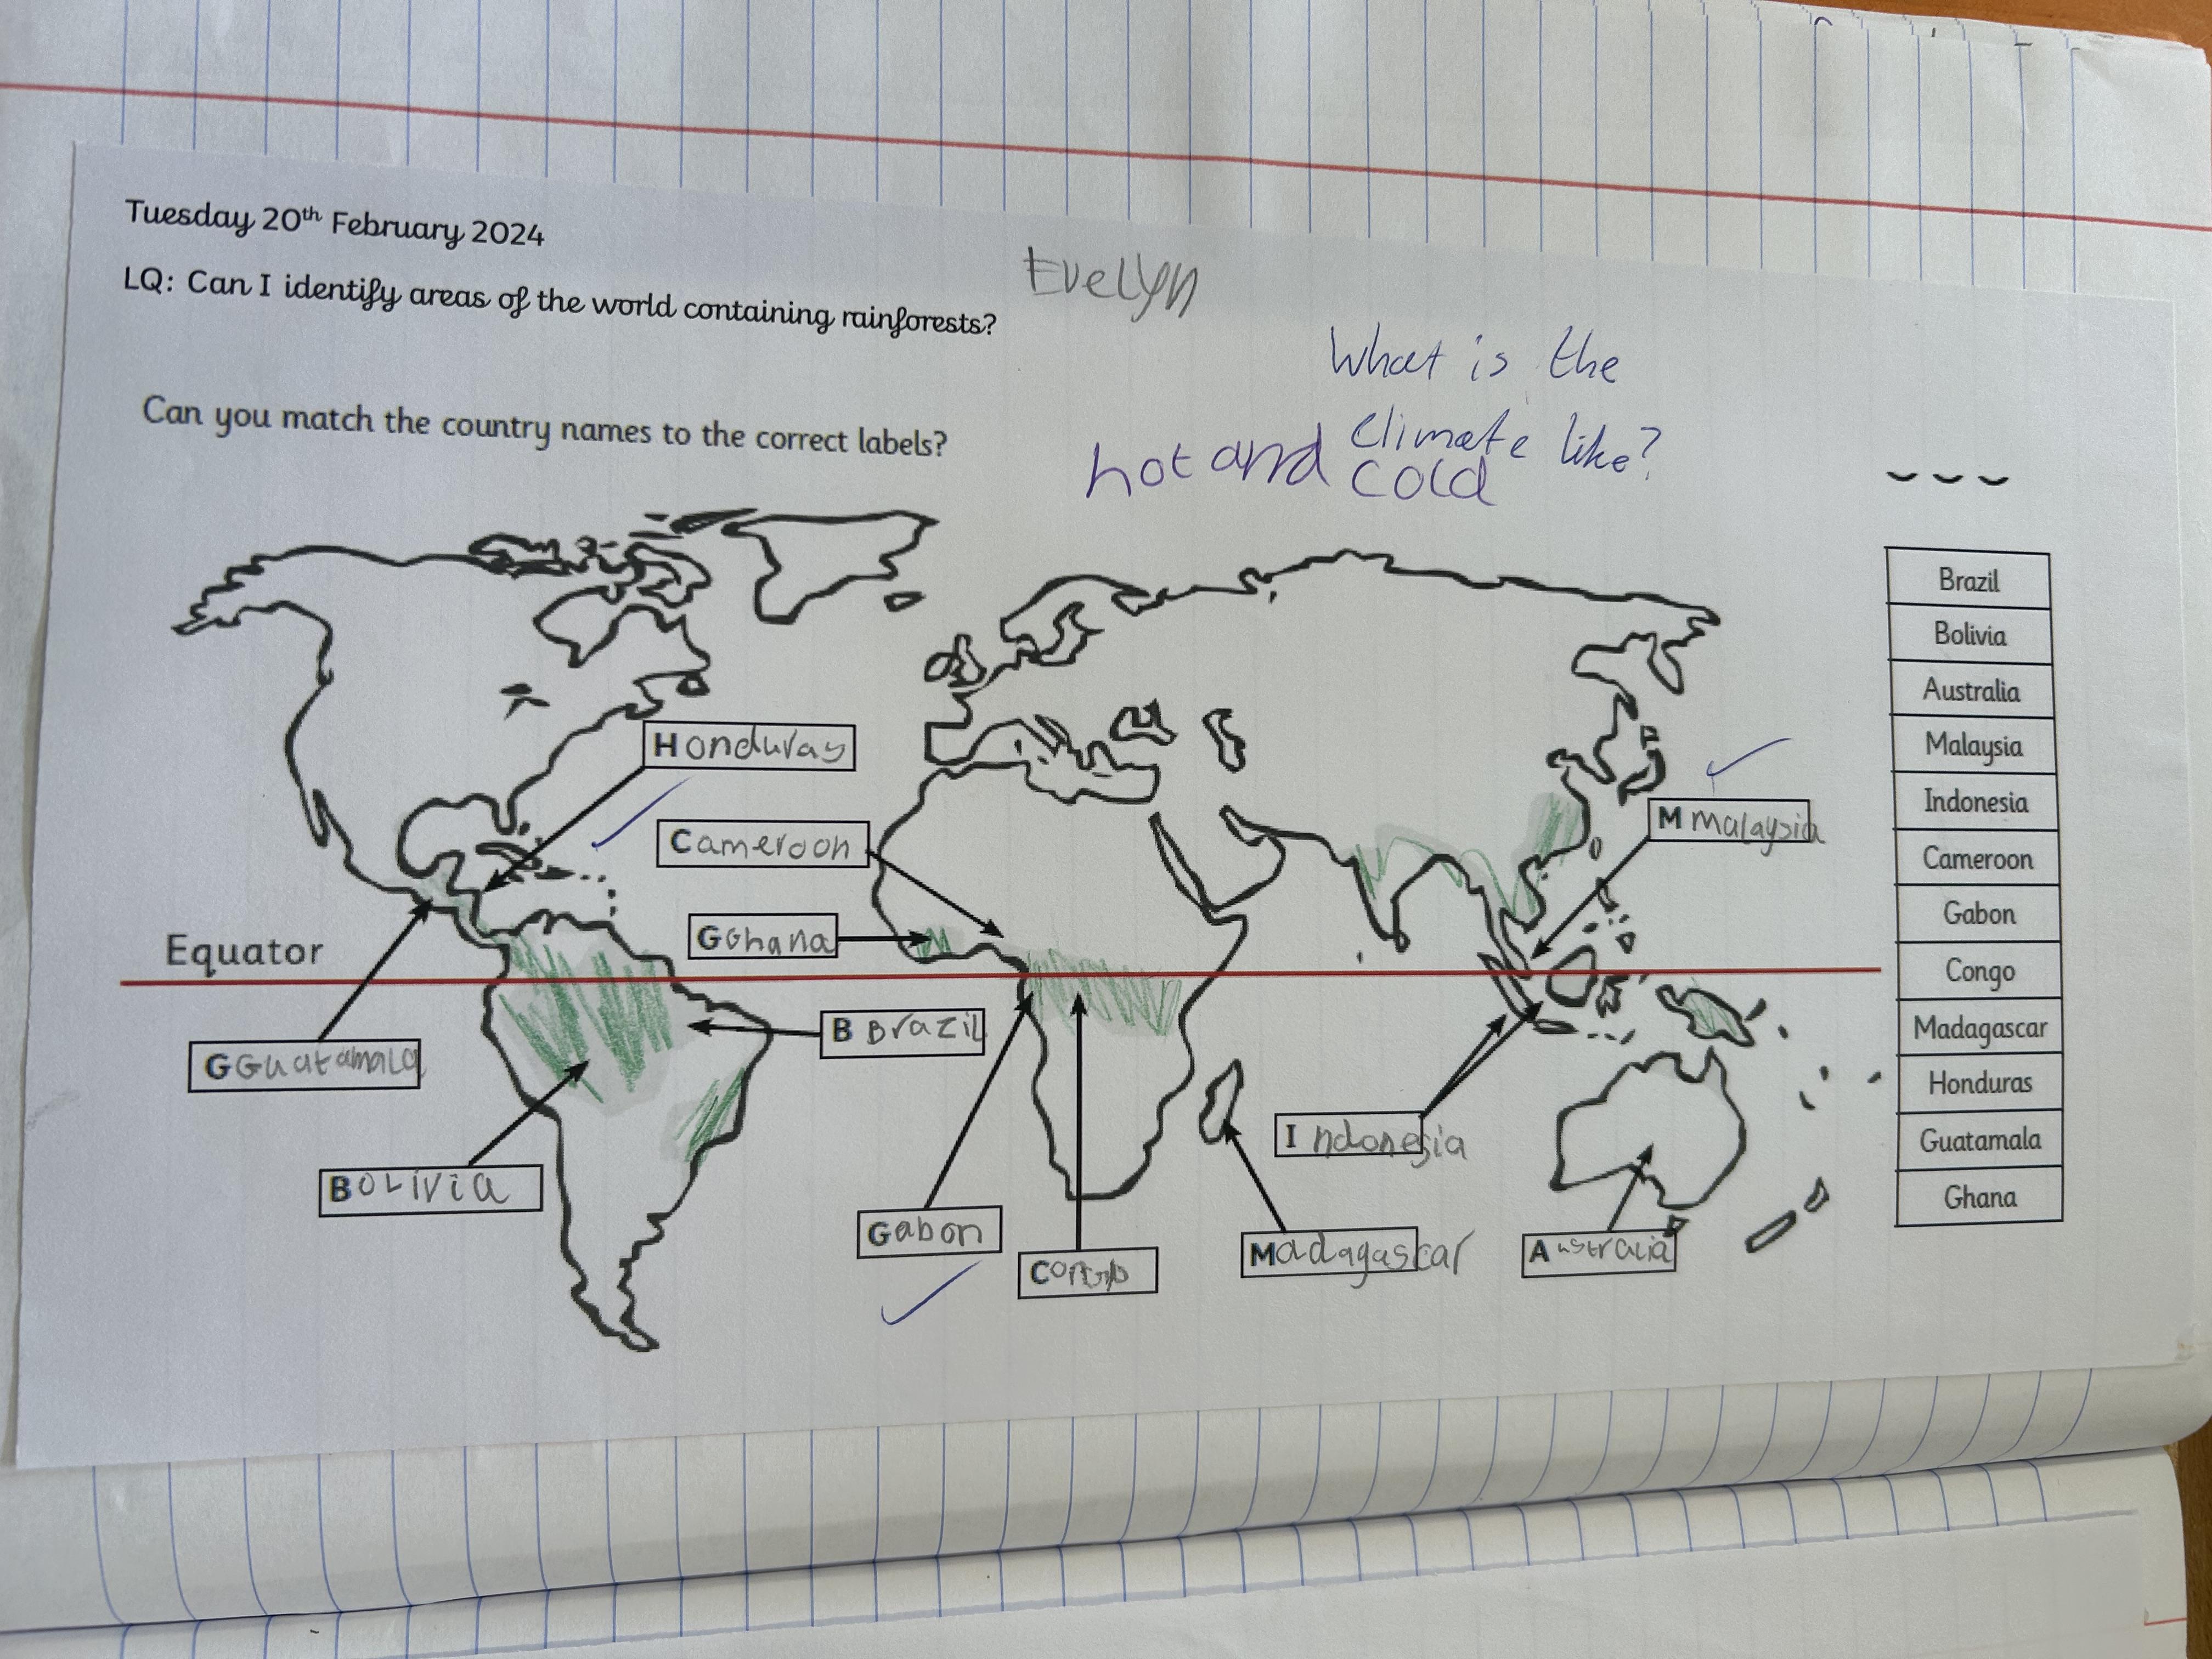 Tuesday 20th February 2024
LQ: Can I identify areas of the world containing rainforests?
Evelyn
What is the
climate like?
hot and cold
Can you match the country names to the correct labels?
Honduras
Cameroon
GGhana
Equator
GGuatamala
B Brazil
Bolivia
Gabon
Congo
Madagascar
Indonesia
Australia
M malaysia
Brazil
Bolivia
Australia
Malaysia
Indonesia
Cameroon
Gabon
Congo
Madagascar
Honduras
Guatamala
Ghana